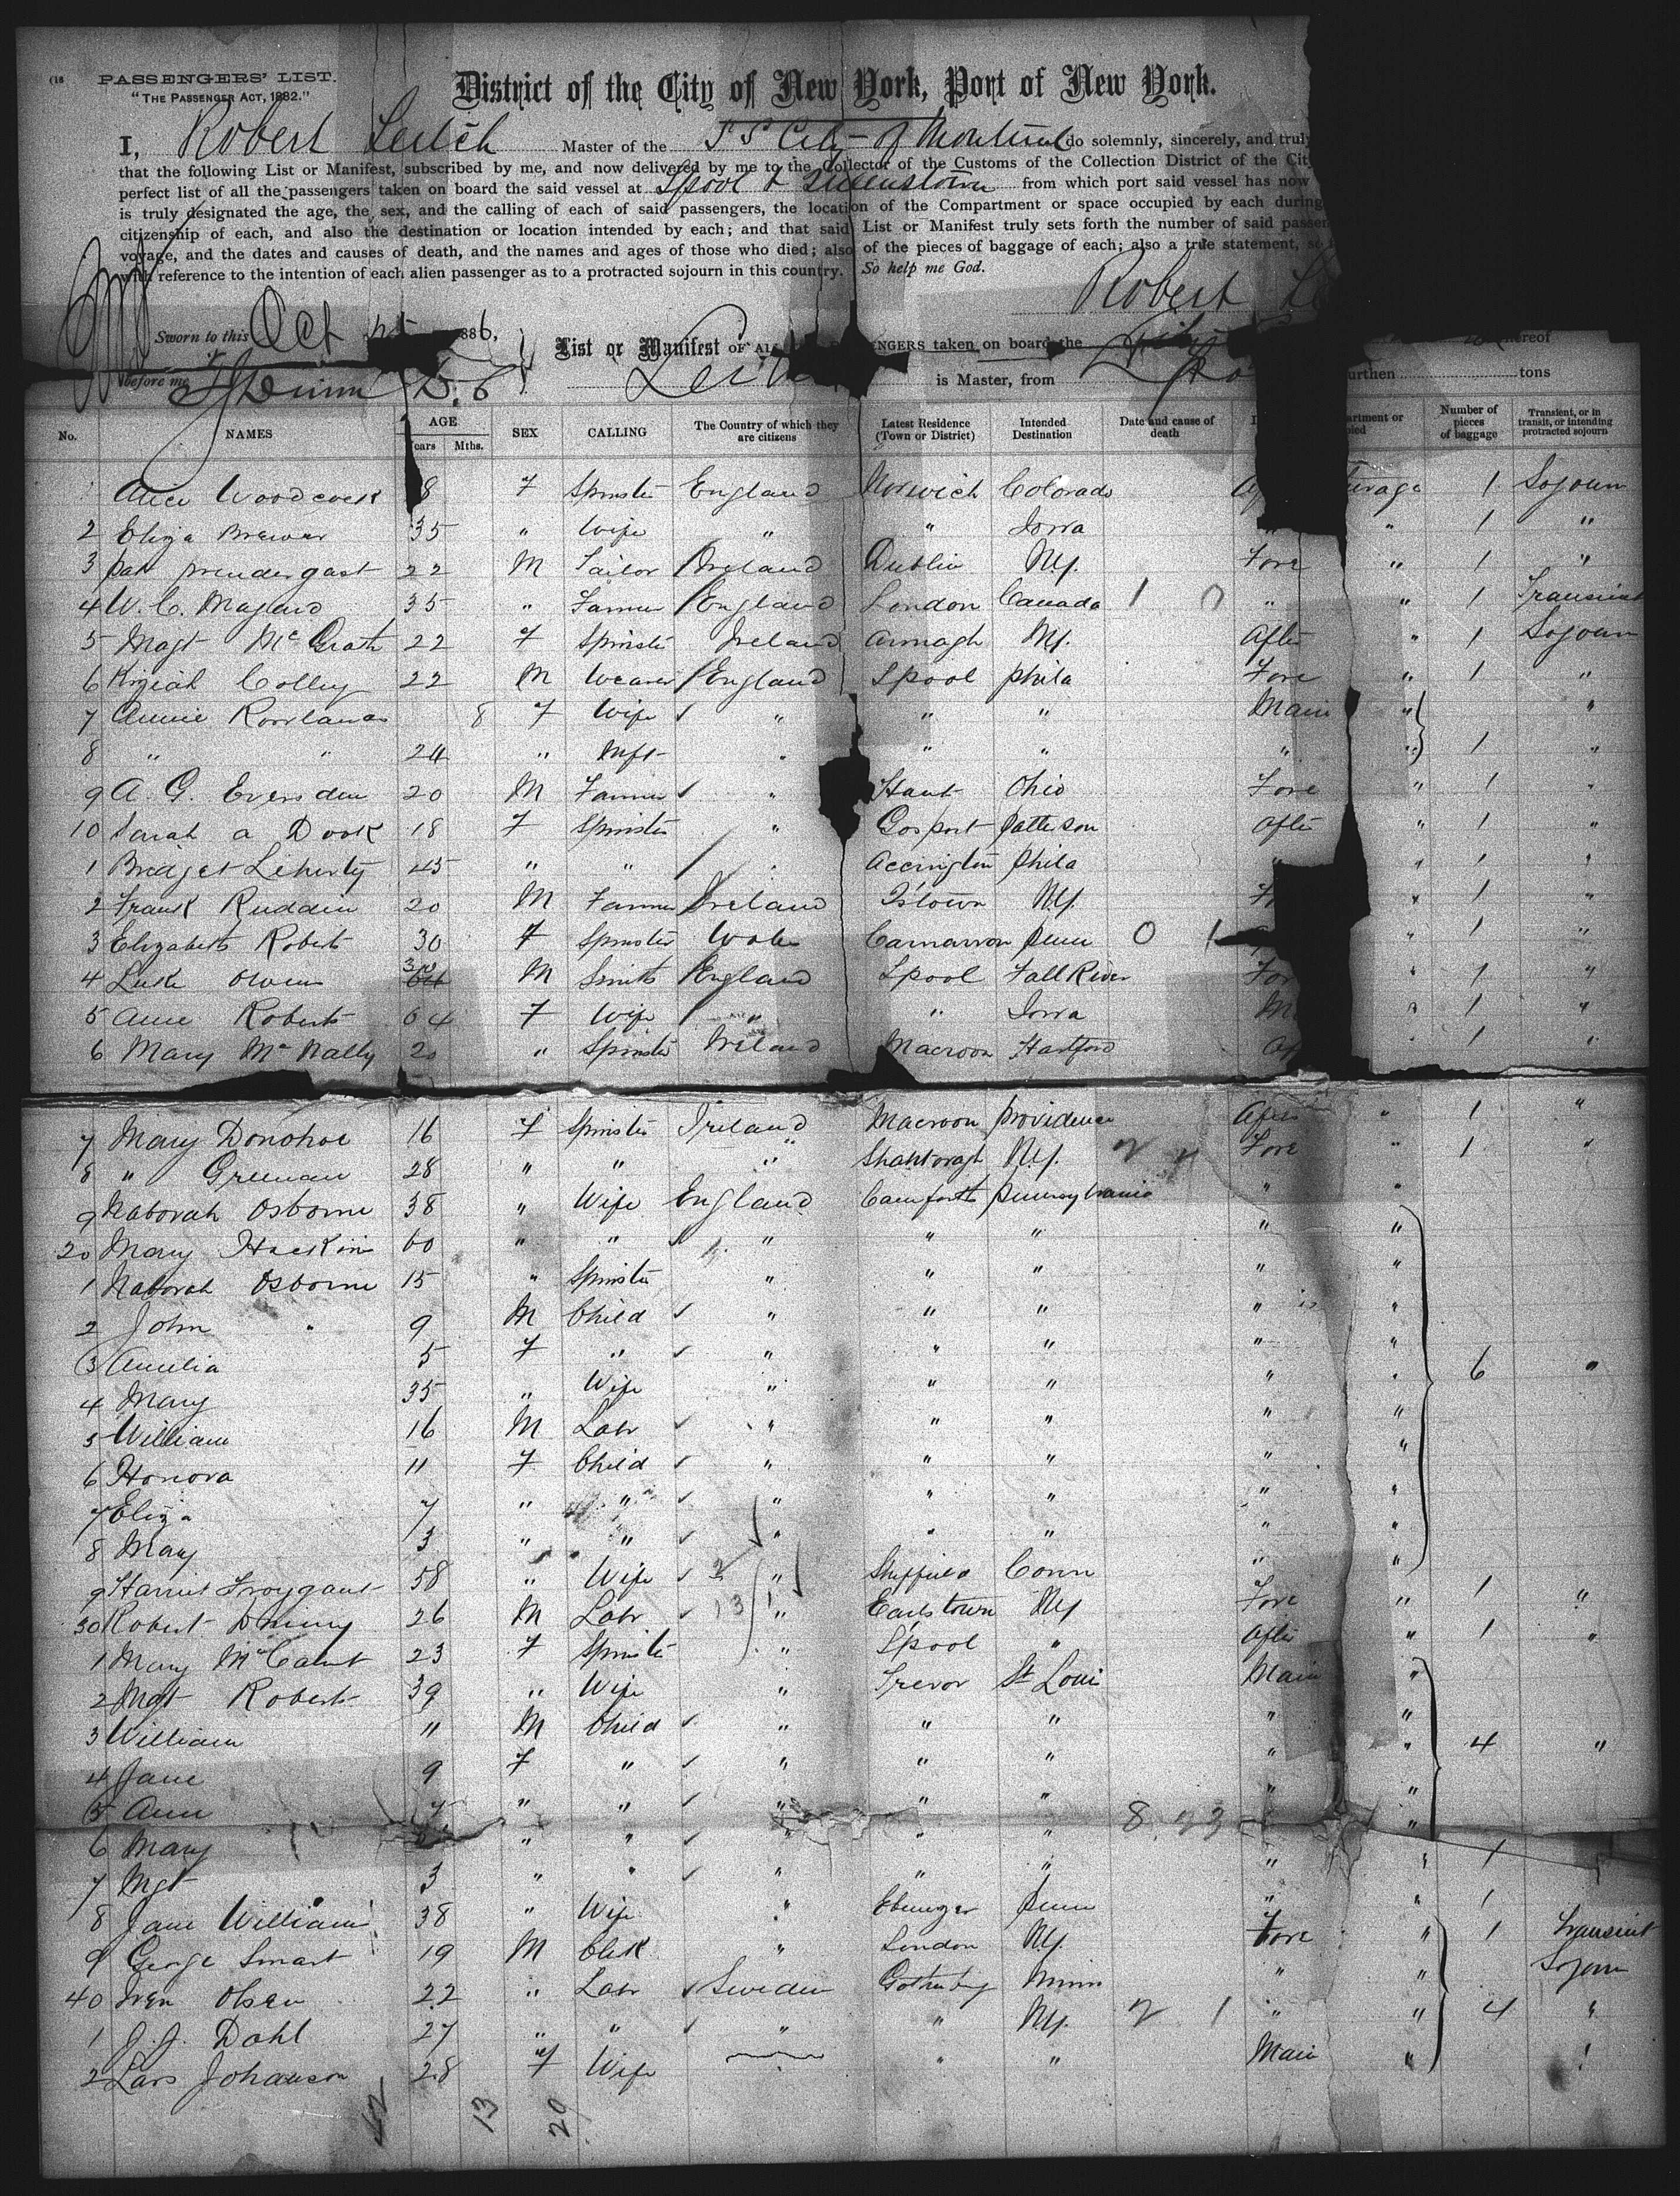 (16 PASSENGERS' LIST.
"THE PASSENGER ACT, 1882."
District of the City of New York, Port of New York.
I, Robert Leitch Master of the SS City of Montreal do solemnly, sincerely, and truly
that the following List or Manifest, subscribed by me, and now delivered by me to the Collector of the Customs of the Collection District of the Cit
perfect list of all the passengers taken on board the said vessel at Lpool & Queenstown from which port said vessel has now
is truly designated the age, the sex, and the calling of each of said passengers, the location of the Compartment or space occupied by each during
citizenship of each, and also the destination or location intended by each; and that said List or Manifest truly sets forth the number of said passen
voyage, and the dates and causes of death, and the names and ages of those who died; also of the pieces of baggage of each; also a true statement, so
with reference to the intention of each alien passenger as to a protracted sojourn in this country. So help me God.
Robert Le
Sworn to this Oct 886,
List or Manifest OF ALL NGERS taken on board the City hereof
before me is Master, from urthen tons
No. NAMES AGE Years Mths. SEX CALLING The Country of which they are citizens Latest Residence (Town or District) Intended Destination Date and cause of death artment or pied Number of pieces of baggage Transient, or in transit, or intending protracted sojourn
1 Alice Woodcock 8 F Spinster England Norwich Colorado erage 1 Sojourn
2 Eliza Brewer 35 " Wife " " Iowa " 1 "
3 Pat Prendergast 22 M Tailor Ireland Dublin NY. Fore " 1 "
4 W. C. 35 " Farmer England London Canada 1 0 " " 1 Transient
5 Magt McGrath 22 F Spinster Ireland Armagh NY. After " 1 Sojourn
6 Colley 22 M Weaver England Lpool Phila Fore " 1 "
7 Annie Rowlands 8 F Wife " " " Main " "
8 " " 24 " Inft " " " " " 1 "
9 A. G. Eversden 20 M Farmer " Hant Ohio Fore " 1 "
10 Sarah A Dook 18 F Spinster " Gosport After " 1 "
1 Bridget Leherty 45 " " " Accrington Phila " " 1 "
2 Frank Ruddin 20 M Farmer Ireland Qstown NY. " 1 "
3 Elizabeth Robert 30 F Spinster Wales Carnarvon Penn 0 1 " 1 "
4 Luke Owens M Smith England Lpool Fall River For " 1 "
5 Ann Roberts 64 F Wife " " Iowa M " 1 "
6 Mary McNally 20 " Spinster Ireland Macroon Hartford " 1 "
7 Mary Donohoe 16 F Spinster Ireland Macroon Providence After " 1 "
8 " 28 " " " NY. 2 Fore " 1 "
9 Naborah Osborne 38 " Wife England Carnforth Pennsylvania " "
20 Mary Haskin 60 " " " " " " "
1 Naborah Osborne 15 " Spinster " " " " "
2 John " 9 M Child " " " " "
3 Amelia 5 F " " " " " " 6 "
4 Mary 35 " Wife " " " " "
5 William 16 M Labr " " " " "
6 Honora 11 F Child " " " " "
7 Eliza 7 " " " " " " "
8 Mary 3 " " " " " " "
9 Harriet 58 " Wife 2 " Sheffield Conn " " 1
30 Robert 26 M Labr 13 " Earlstown NY Fore " 1 "
1 Mary 23 F Spinster " Lpool " After " 1 "
2 Mgt Robert 39 " Wife " Trevor St Loui Main "
3 William 11 M Child " " " " "
4 Jane 9 F " " " " " " 4 "
5 Ann 7 " " " " " " "
6 Mary " " " " " 8. 33 "
7 Mgt 3 " " " " " " " 1
8 Jane William 38 " Wife " Ebenezer Penn " " 1
9 George Smart 19 M Clerk " London NY. Fore " 1 Transient
40 Iver Olsen 22 " Labr Sweden Gothenbg Minn " " Sojourn
1 J. J. Dahl 27 " " " " NY. 2 1 " " 4 "
2 Lars Johanson 28 F Wife " " Main "
42 13 29